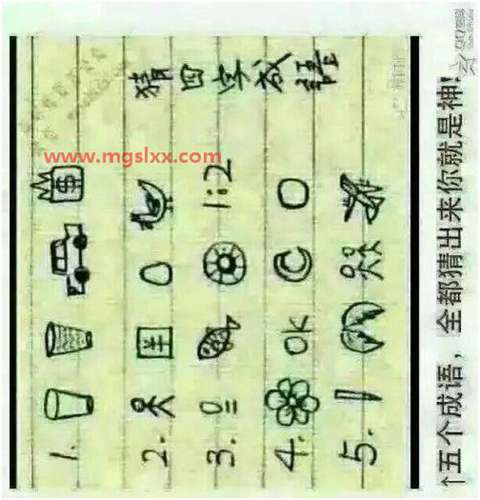 猜四字成語
1. $
2. 羊
3. 1:2
4. OK
5.
www.mgslxx.com
↑五个成语，全都猜出来你就是神!